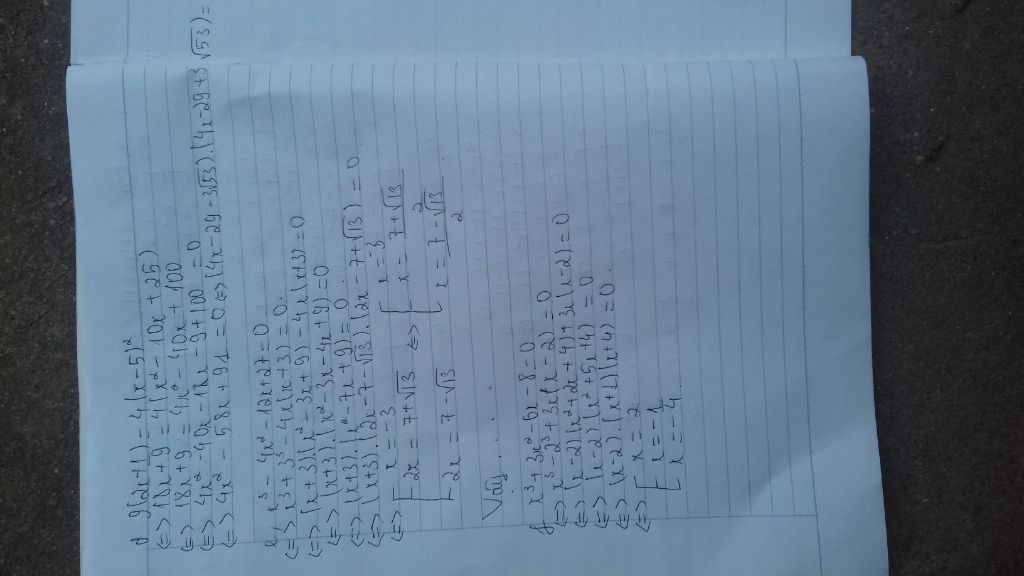 d, 9(2x+1) = 4(x-5)²
<=> 18x + 9 = 4(x² - 10x + 25)
<=> 18x + 9 = 4x² - 40x + 100
<=> 4x² - 40x - 18x - 9 + 100 = 0
<=> 4x² - 58x + 91 = 0 <=> (4x - 29 - 3√53).(4x - 29 + 3√53) =
e, x³ - 4x² - 12x + 27 = 0.
<=> x³ + 3³ - 4x(x+3) = 0.
<=> (x+3)(x² - 3x + 9) - 4x(x+3) = 0
<=> (x+3).(x² - 3x - 4x + 9) = 0
<=> (x+3).(x² - 7x + 9) = 0.
<=> (x+3).(2x - 7 - √13).(2x - 7 + √13) = 0.
<=> [ x = -3 2x = 7 + √13 2x = 7 - √13 <=> [ x = -3 x = 7+√13/2 x = 7-√13/2
Vậy . . . .
f, x³ + 3x² - 6x - 8 = 0
<=> x³ - 2³ + 3x(x-2) = 0
<=> (x-2)(x² + 2x + 4) + 3x(x-2) = 0
<=> (x-2)(x² + 5x + 4) = 0
<=> (x-2).(x+1)(x+4) = 0.
<=> [ x = 2
x = -1
x = -4.